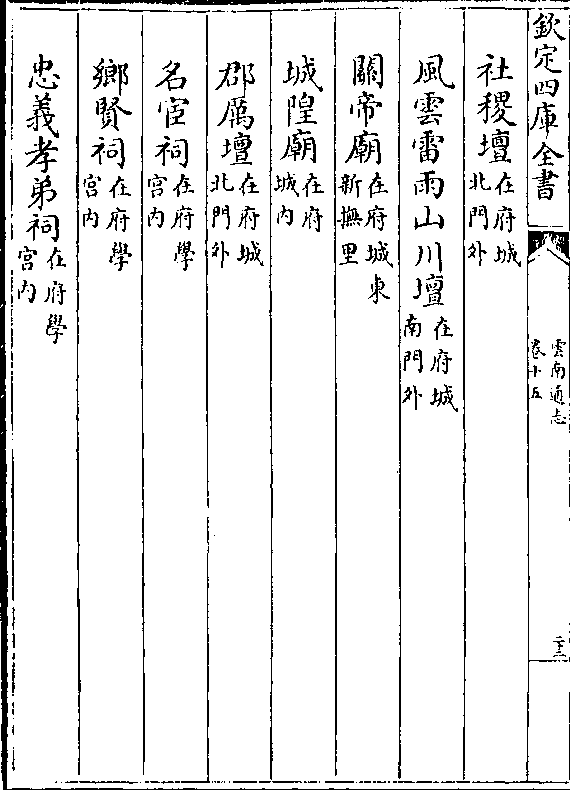 欽定四庫全書
雲南通志
卷十五
二十三
社稷壇在府城北門外
風雲雷雨山川壇在府城南門外
關帝廟在府城東新撫里
城隍廟在府城内
郡厲壇在府城北門外
名宦祠在府學宫内
鄉賢祠在府學宫内
忠義孝弟祠在府學宫内